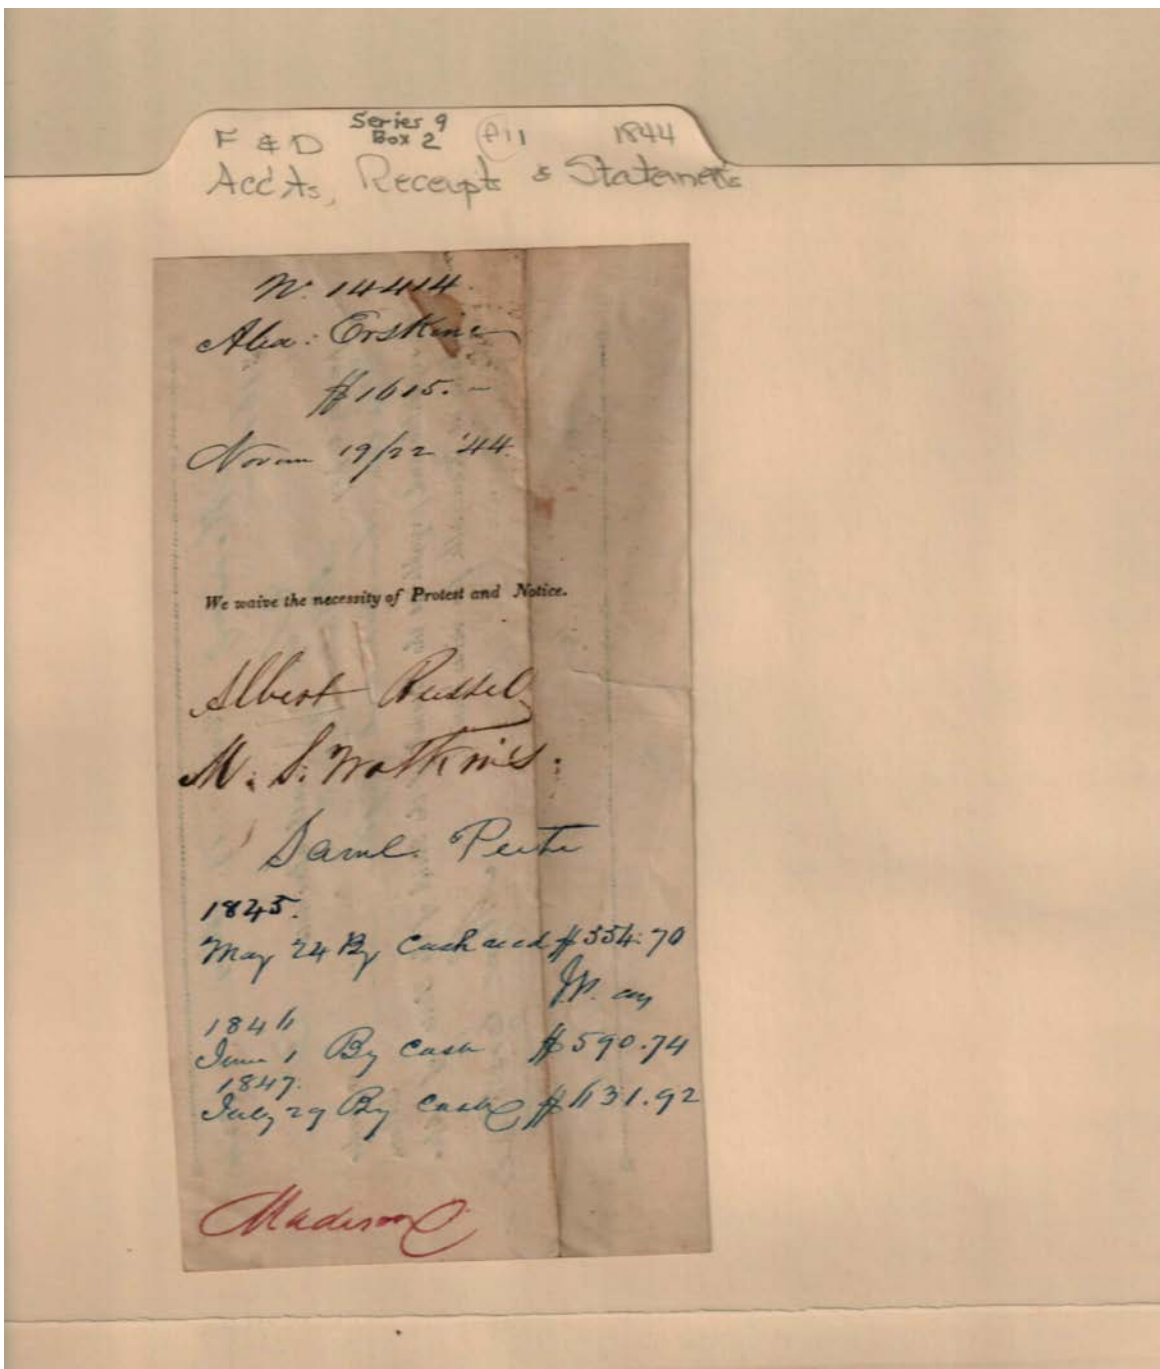 Series 9
F & D Box 2 P11 1844
Acc'ts, Receipts & Statements
N. 14414.
Alex: Erskine
$1615. –
Novem 19/22 '44.
We waive the necessity of Protest and Notice.
Albert Russel
M. S. Watkins.
Saml. Peete
1845.
May 24 By Cash $554.70
1846
June 1 By Cash $590.74
1847.
July 29 By Cash $631.92
Madison